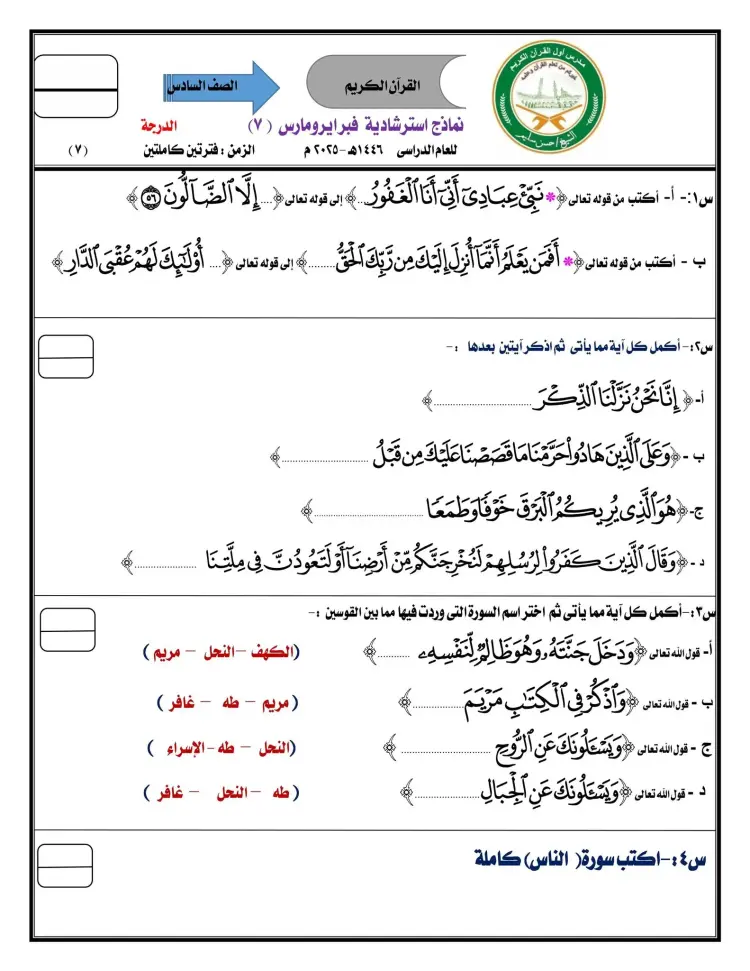 مدرس أول القرآن الكريم
خيركم من تعلم القرآن وعلمه
الشيخ/حسن سليم
القرآن الكريم
الصف السادس
نماذج استرشادية فبرايرومارس (٧)
الدرجة
للعام الدراسى ١٤٤٦هـ-٢٠٢٥ م
الزمن : فترتين كاملتين
(٧)
س١:- أ- أكتب من قوله تعالى ﴿* نَبِّئْ عِبَادِىٓ أَنِّىٓ أَنَا ٱلْغَفُورُ..﴾ إلى قوله تعالى ﴿.... إِلَّا ٱلضَّآلُّونَ ٥٦﴾
ب - أكتب من قوله تعالى ﴿* أَفَمَن يَعْلَمُ أَنَّمَآ أُنزِلَ إِلَيْكَ مِن رَّبِّكَ ٱلْحَقُّ.........﴾ إلى قوله تعالى ﴿.... أُوْلَٰٓئِكَ لَهُمْ عُقْبَى ٱلدَّارِ﴾
س٢:- أكمل كل آية مما يأتى ثم اذكر آيتين بعدها :-
أ- ﴿ إِنَّا نَحْنُ نَزَّلْنَا ٱلذِّكْرَ ..............................﴾
ب -﴿وَعَلَى ٱلَّذِينَ هَادُواْ حَرَّمْنَا مَا قَصَصْنَا عَلَيْكَ مِن قَبْلُ ..........................﴾
ج-﴿هُوَ ٱلَّذِى يُرِيكُمُ ٱلْبَرْقَ خَوْفًا وَطَمَعًا ..............................﴾
د -﴿وَقَالَ ٱلَّذِينَ كَفَرُواْ لِرُسُلِهِمْ لَنُخْرِجَنَّكُم مِّنْ أَرْضِنَآ أَوْ لَتَعُودُنَّ فِى مِلَّتِنَا ...................﴾
س٣:-أكمل كل آية مما يأتى ثم اختر اسم السورة التى وردت فيها مما بين القوسين :-
أ- قول الله تعالى ﴿وَدَخَلَ جَنَّتَهُۥ وَهُوَ ظَالِمٌ لِّنَفْسِهِۦ ..........﴾ (الكهف –النحل – مريم )
ب - قول الله تعالى ﴿وَٱذْكُرْ فِى ٱلْكِتَٰبِ مَرْيَمَ ................﴾ (مريم – طه – غافر )
ج - قول الله تعالى ﴿وَيَسْـَٔلُونَكَ عَنِ ٱلرُّوحِ ..........................﴾ (النحل – طه –الإسراء )
د - قول الله تعالى ﴿وَيَسْـَٔلُونَكَ عَنِ ٱلْجِبَالِ ....................﴾ ( طه – النحل – غافر )
س٤:-اكتب سورة( الناس) كاملة